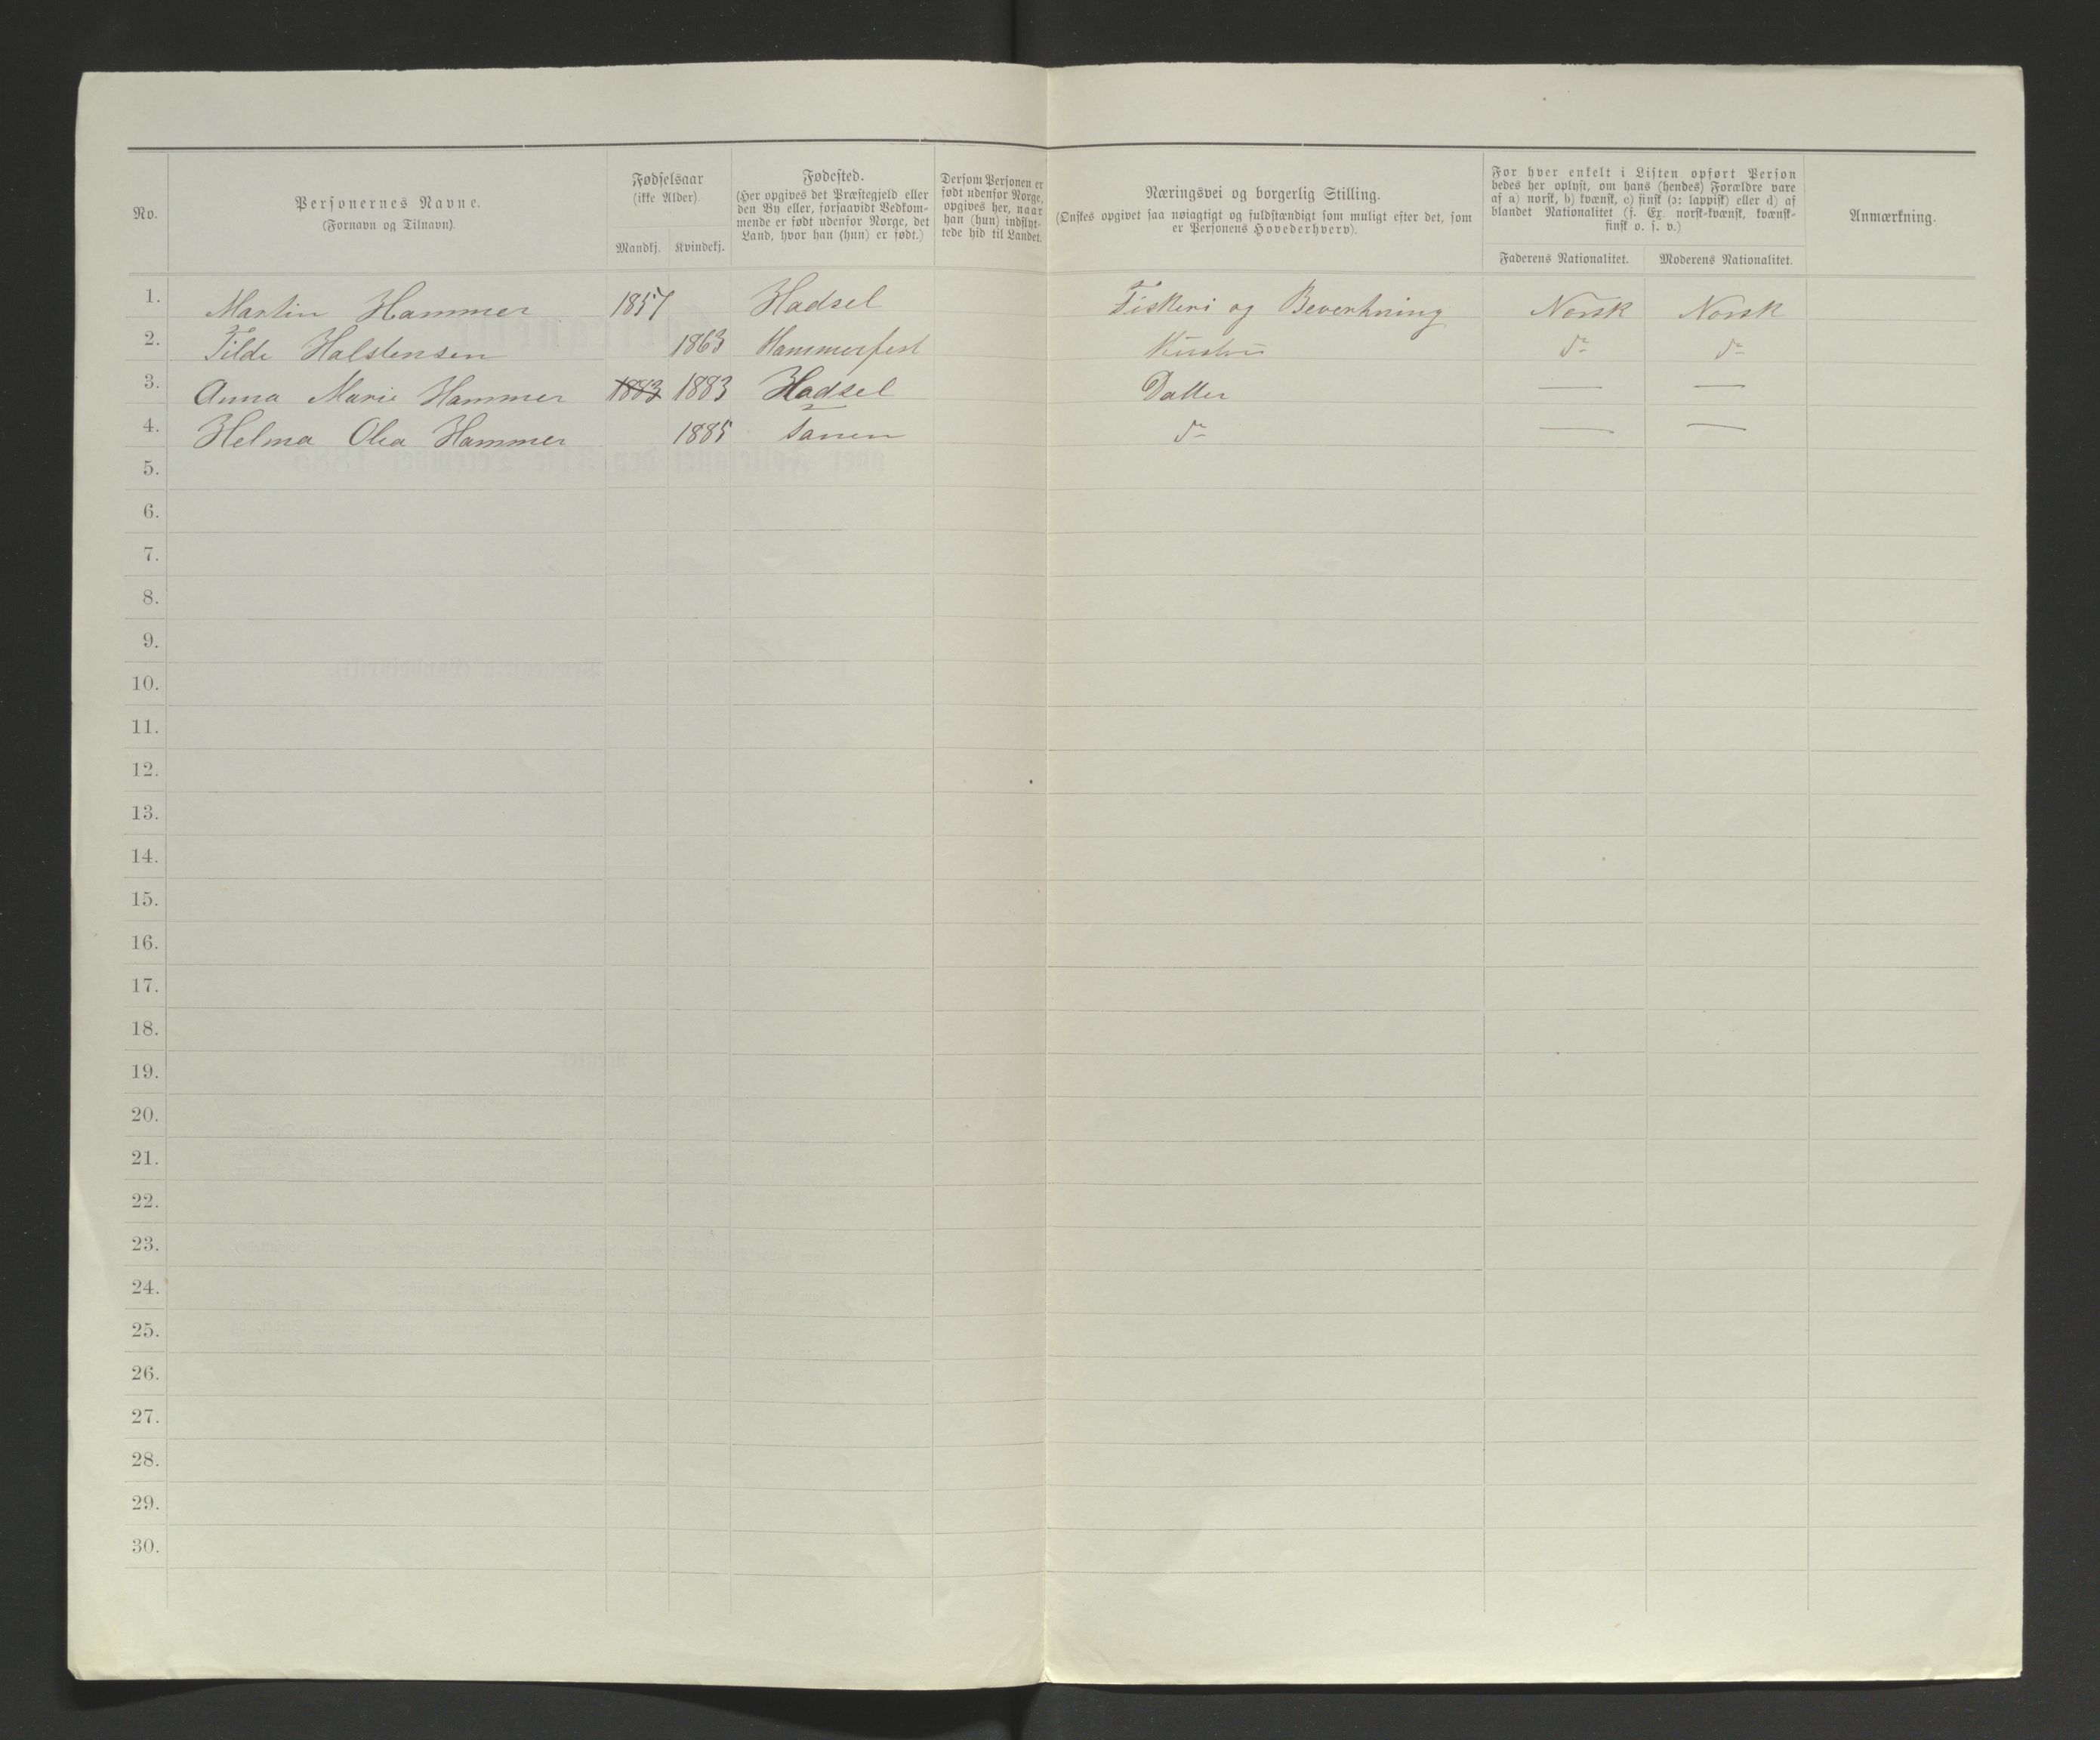 No.
Personernes Navne.
(Fornavn og Tilnavn).
Fødselsaar
(ikke Alder).
Mandkj.
Kvindekj.
Fødested.
(Her opgives det Præstegjeld eller
den By eller, forsaavidt Vedkom-
mende er født udenfor Norge, det
Land, hvor han (hun) er født.)
Dersom Personen er
født udenfor Norge,
opgives her, naar
han (hun) indflyt-
tede hid til Landet.
Næringsvei og borgerlig Stilling.
(Ønskes opgivet saa nøiagtigt og fuldstændigt som muligt efter det, som
er Personens Hovederhverv).
For hver enkelt i Listen opført Person
bedes her oplyst, om hans (hendes) Forældre vare
af a) norsk, b) kvænsk, c) finsk (ɔ: lappisk) eller d) af
blandet Nationalitet (f. Ex. norsk-kvænsk, kvænsk-
finsk o. s. v.)
Faderens Nationalitet.
Moderens Nationalitet.
Anmærkning.
1. Martin Hammer 1857 Hadsel Fiskeri og Beverkning Norsk Norsk
2. Tilde Halstensen 1863 Hammerfest Hustru do do
3. Anna Marie Hammer 1883 1883 Hadsel Datter — —
4. Helma Olea Hammer 1885 Tanen do — —
5.
6.
7.
8.
9.
10.
11.
12.
13.
14.
15.
16.
17.
18.
19.
20.
21.
22.
23.
24.
25.
26.
27.
28.
29.
30.